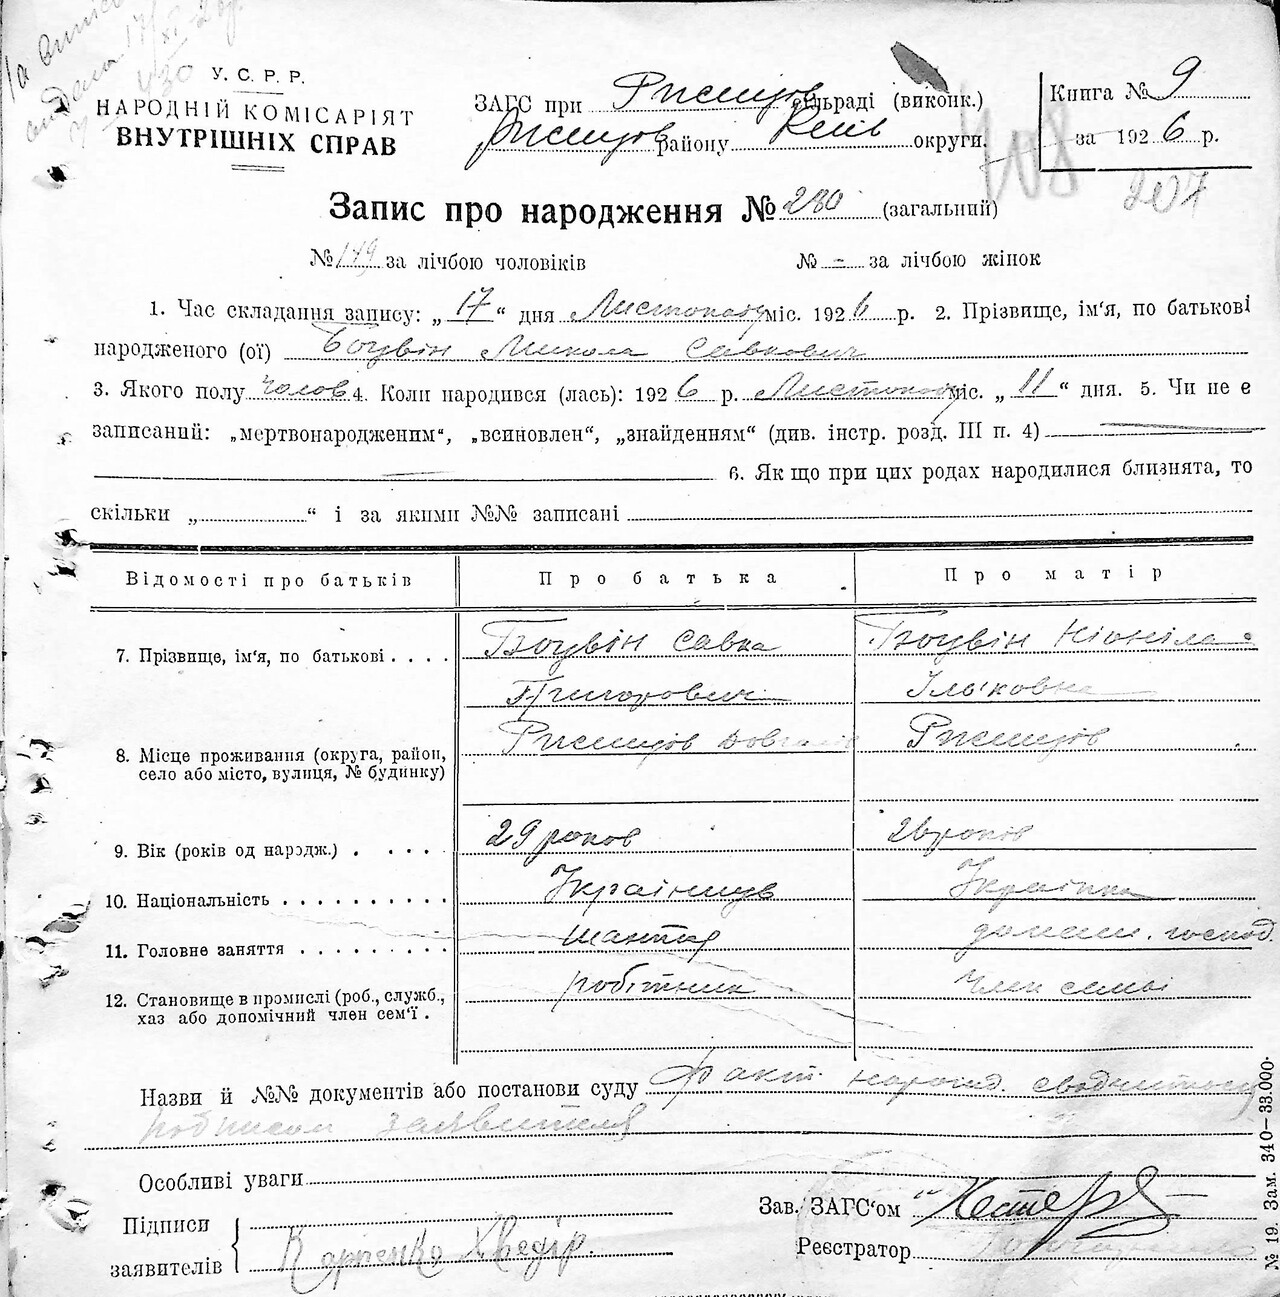 У. С. Р. Р.
НАРОДНІЙ КОМІСАРІЯТ
ВНУТРІШНІХ СПРАВ
ЗАГС при Ржищов сільраді (виконк.)
Ржищов району Київ округи.
Книга № 9
за 1926 р.
708
207
Запис про народження № 280 (загальний)
№ 149 за лічбою чоловіків № - за лічбою жінок
1. Час складання запису: „17“ дня Листопаду міс. 1926 р. 2. Прізвище, ім'я, по батькові
народженого (ої) Боувін Микола Савкович
3. Якого полу чолов 4. Коли народився (лась): 1926 р. Листопаду міс. „11“ дня. 5. Чи не є
записаний: „мертвонародженим“, „всиновлен“, „знайденням“ (див. інстр. розд. III п. 4)
6. Як що при цих родах народилися близнята, то
скільки „ “ і за якими №№ записані
Відомості про батьків Про батька Про матір
7. Прізвище, ім'я, по батькові . . . . Боувін Савка Боувін Ніоніла
Григорович Ільковна
8. Місце проживання (округа, район, село або місто, вулиця, № будинку) Ржищов Ржищов
9. Вік (років од нарэдж.) . . . . . 29 роков 26 роков
10. Національність . . . . . . . . . . Українець Українка
11. Головне заняття . . . . . . . . шахтар домаш. господ.
12. Становище в промислі (роб., служб., хаз або допомічний член сем'ї . робітник Член семьі
Назви й №№ документів або постанови суду факт народ.
подписом заявителя
Особливі уваги
Підписи
заявителів Карпенко Хведір.
Зав. ЗАГС'ом
Реєстратор
№ 19. Зам. 340—33.000.